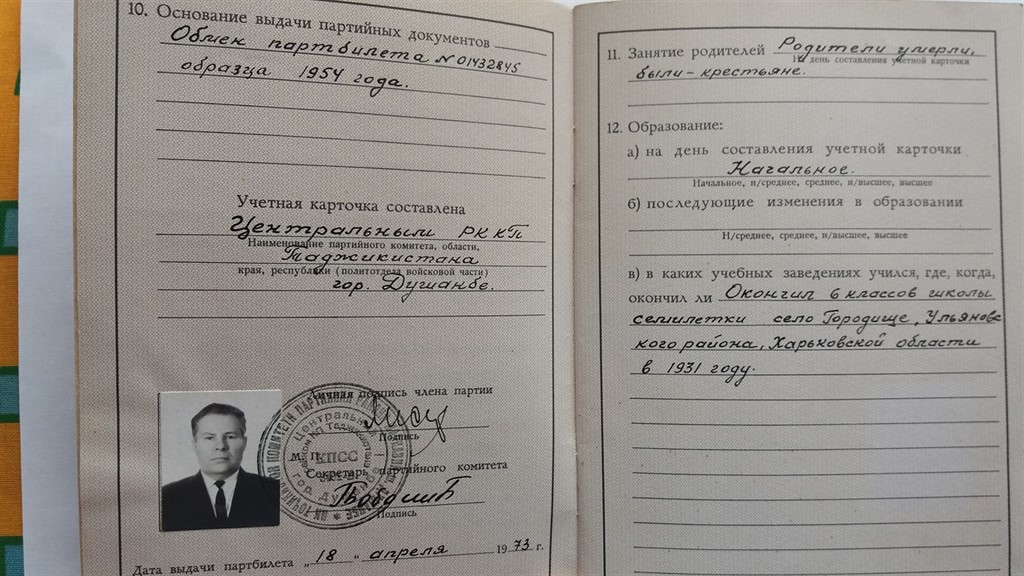 10. Основание выдачи партийных документов
Обмен партбилета № 01432845
образца 1954 года.
Учетная карточка составлена
Центральным РК КП
Наименование партийного комитета, области,
Таджикистана
края, республики (политотдела войсковой части)
гор. Душанбе.
Личная подпись члена партии
Подпись
М. П.
КПСС
Секретарь партийного комитета
Подпись
Дата выдачи партбилета „18„ апреля 1973 г.
11. Занятие родителей Родители умерли,
На день составления учетной карточки
были – крестьяне.
12. Образование:
а) на день составления учетной карточки
Начальное.
Начальное, н/среднее, среднее, н/высшее, высшее
б) последующие изменения в образовании
Н/среднее, среднее, н/высшее, высшее
в) в каких учебных заведениях учился, где, когда,
окончил ли Окончил 6 классов школы
семилетки село Городище, Ульяновс
кого района, Харьковской области
в 1931 году.